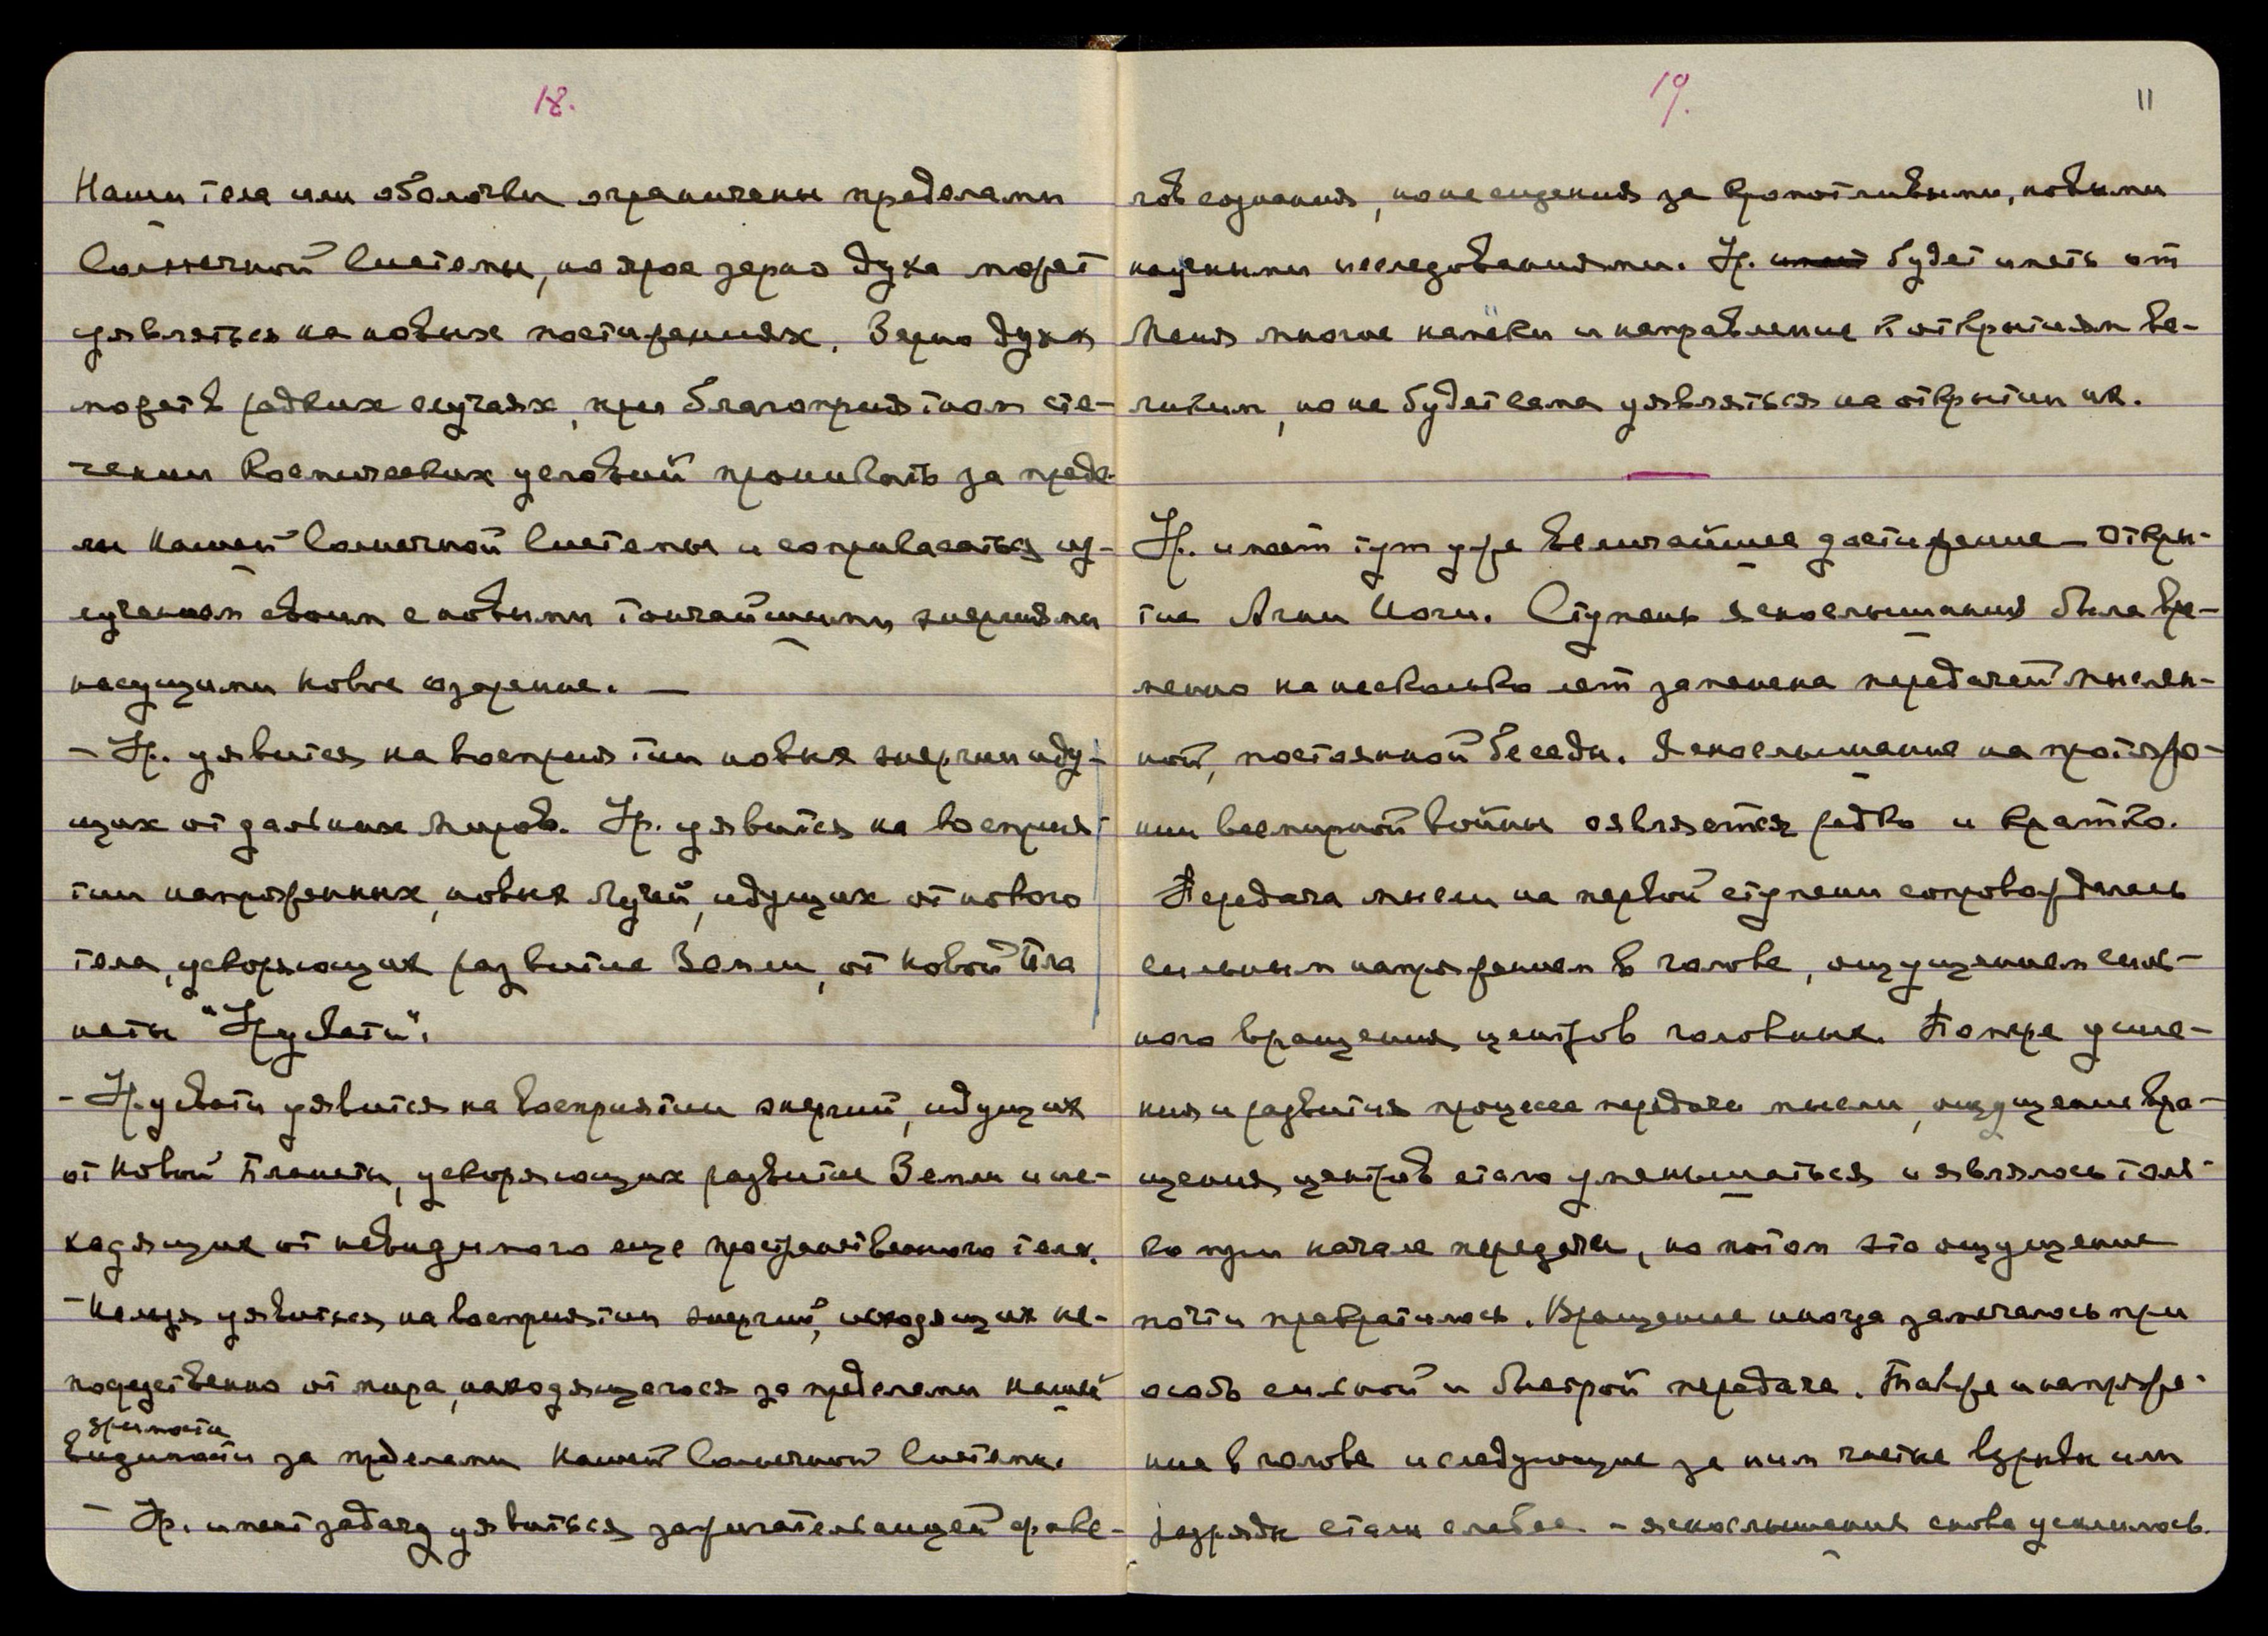 18.
Наши тела или оболочки ограничены пределами
Солнечной Системы, но ярое зерно духа может
уявляться на новых постижениях. Зерно духа
может в редких случаях, при благоприятном сте-
чении космических условий проникать за преде-
лы нашей Солнечной Системы и соприкасаться из-
лучением своим с новыми тончайшими энергиями
несущими новое озарение. —
- Ур. уявится на восприятии новых энергий иду-
щих от дальних миров. Ур. уявится на восприя-
тии напряженных, новых Лучей, идущих от нового
тела, ускоряющих развитие Земли, от новой Пла
неты "Урусвати".
- Урусвати уявится на восприятии энергий, идущих
от новой Планеты, ускоряющих развитие Земли и ис-
ходящих от невидимого еще пространственного тела.
- Нельзя уявиться на восприятии энергий, исходящих не-
посредственно от мира, находящегося за пределами нашей
зримости
видимости за пределами нашей Солнечной Системы.
- Ур. имеет задачу уявиться зажигательницей факе-
19.
11
лов сознания, но не сидения за кропотливыми, новыми
научными исследованиями. Ур. имеет будет иметь от
Меня многие намёки и направление к открытиям ве-
ликим, но не будет сама уявляться на открытии их.
Ур. имеет тут уже величайшее достижение — Откры-
тие Агни Йоги. Ступень яснослышания была вре-
менно на несколько лет заменена передачей мыслен-
ной, постоянной беседы. Яснослышание на протяже-
нии всемирной войны оявляется редко и кратко.
Передача мысли на первой ступени сопровождалась
сильным напряжением в голове, ощущением силь-
ного вращения центров головных. По мере усиле-
ния и развития процесса передачи мысли, ощущение вра-
щения центров стало уменьшаться и являлось толь-
ко при начале передачи, но потом это ощущение
почти прекратилось. Вращение иногда замечалось при
особо сильной и быстрой передаче. Также и напряже-
ние в голове и следующие за ним частые взрывы или
разряды стали слабее. - яснослышания снова усилилось.